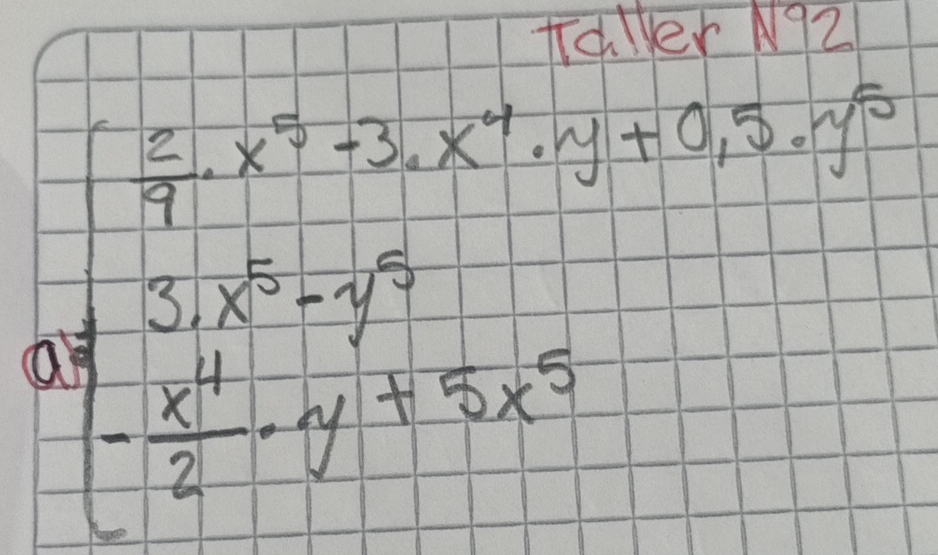 Taller Nº2
2/9 . x⁵ - 3 . x⁴ . y + 0,5 . y⁵
3 . x⁵ - y⁵
a)
- x⁴/2 . y + 5x⁵